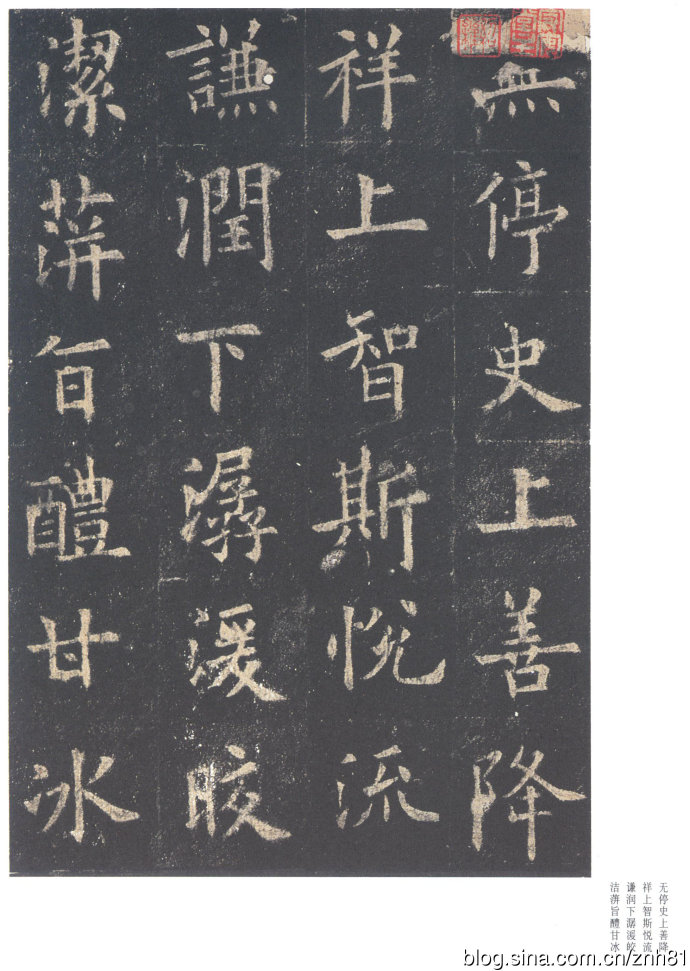 無停史上善降
祥上智斯悅流
謙潤下潺湲皎
潔蓱旨醴甘冰
无停史上善降
祥上智斯悦流
谦润下潺湲皎
洁蓱旨醴甘冰
blog.sina.com.cn/znh81